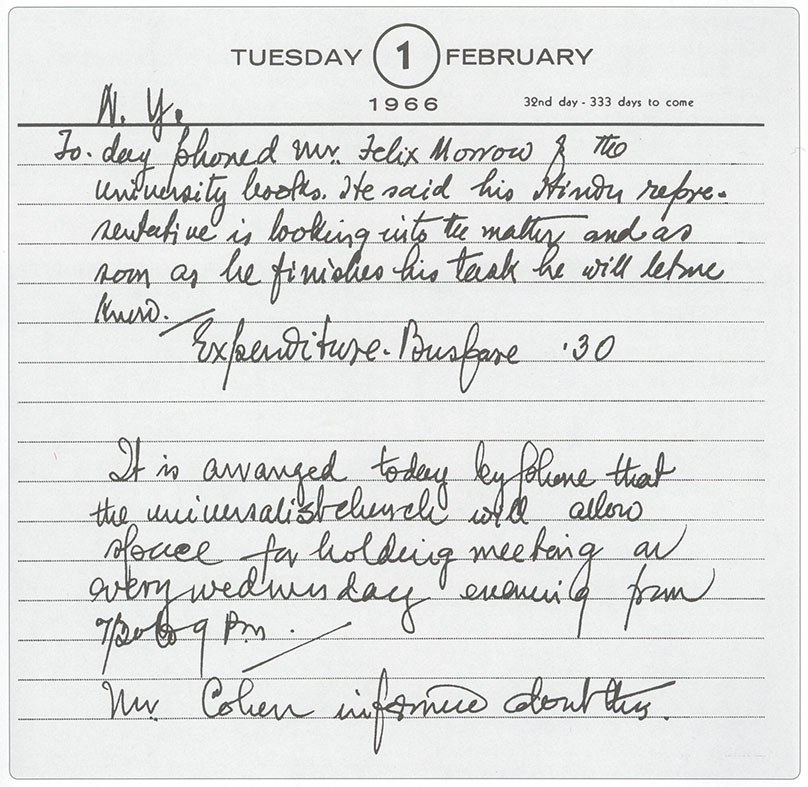 TUESDAY 1 FEBRUARY
1966 32nd day - 333 days to come
N. Y.
To-day phoned Mr. Felix Morrow of the
university books. He said his Hindu repre-
sentative is looking into the matter and as
soon as he finishes his task he will let me
know.
Expenditure. Busfare .30
It is arranged today by phone that
the universalist church will allow
space for holding meeting on
every wednesday evening from
7/30 to 9 P.m.
Mr. Cohen informed about this.